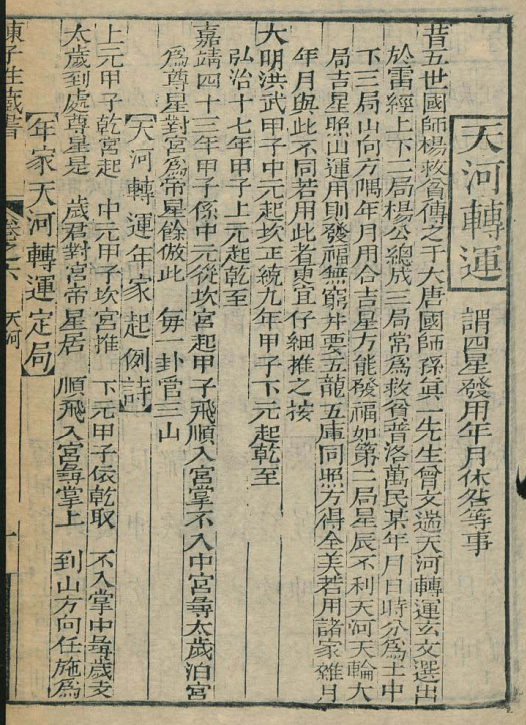 天河轉運 謂四星發用年月休咎等事
昔五世國師楊救貧傳之于大唐國師孫眞一先生曾文遄天河轉運玄文選出
於雷經上下二局楊公總成三局常爲救貧普洛萬民某年月日時分爲上中
下三局山向方隅年月用合吉星方能發福如第二局星辰不利天河天輪大
局吉星照山運用則發福無窮幷要五龍五庫同照方得全美若用諸家雜月
年月與此不同若用此者更宜仔細推之按
大明洪武甲子中元起坎正統九年甲子下元起乾至
弘治十七年甲子上元起乾至
嘉靖四十三年甲子係中元從坎宮起甲子飛順入宮掌不入中宮尋太歲泊宮
爲尊星對宮爲帝星餘倣此 每一卦管三山
天河轉運年家起例詩
上元甲子乾宮起 中元甲子坎宮推 下元甲子依乾取 不入掌中尋歲支
太歲到處尊星是 歲君對宮帝星居 順飛入宮尋掌上 到山方向任施爲
年家天河轉運定局
陳子性藏書 卷之六 天河 一